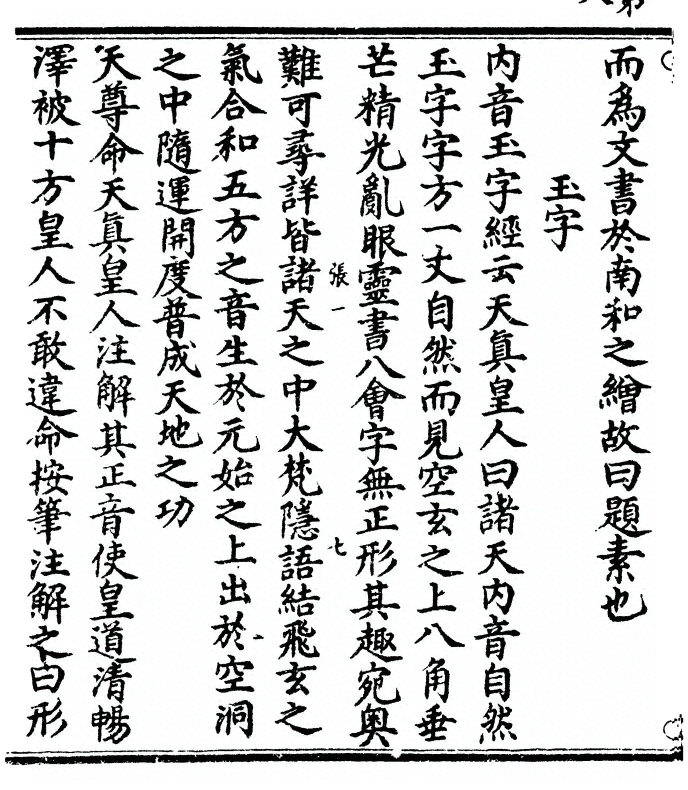 而爲文書於南和之繒故曰題素也
玉字
内音玉字經云天眞皇人曰諸天内音自然
玉字字方一丈自然而見空玄之上八角垂
芒精光亂眼靈書八會字無正形其趣宛奥
張一
七
難可尋詳皆諸天之中大梵隱語結飛玄之
氣合和五方之音生於元始之上出於空洞
之中隨運開度普成天地之功
天尊命天眞皇人注解其正音使皇道清暢
澤被十方皇人不敢違命按筆注解之曰形